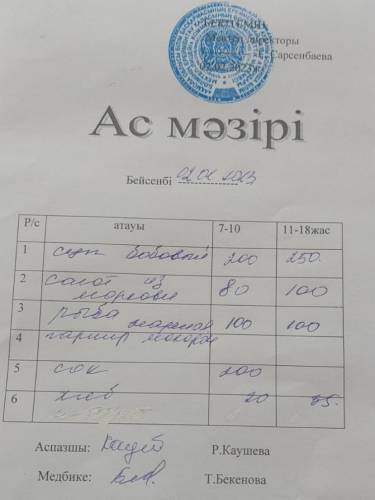 БЕКІТЕМІН
директоры
Сарсенбаева
Ас мәзірі
Бейсенбі 02.02.2023
Р/с атауы 7-10 11-18жас
1 суп бобовый 200 250
2 салат из моркови 80 100
3 рыба жареная 100 100
4 гарнир макарон
5 сок 200
6 хлеб 20 25
Аспазшы: Р.Каушева
Медбике: Т.Бекенова